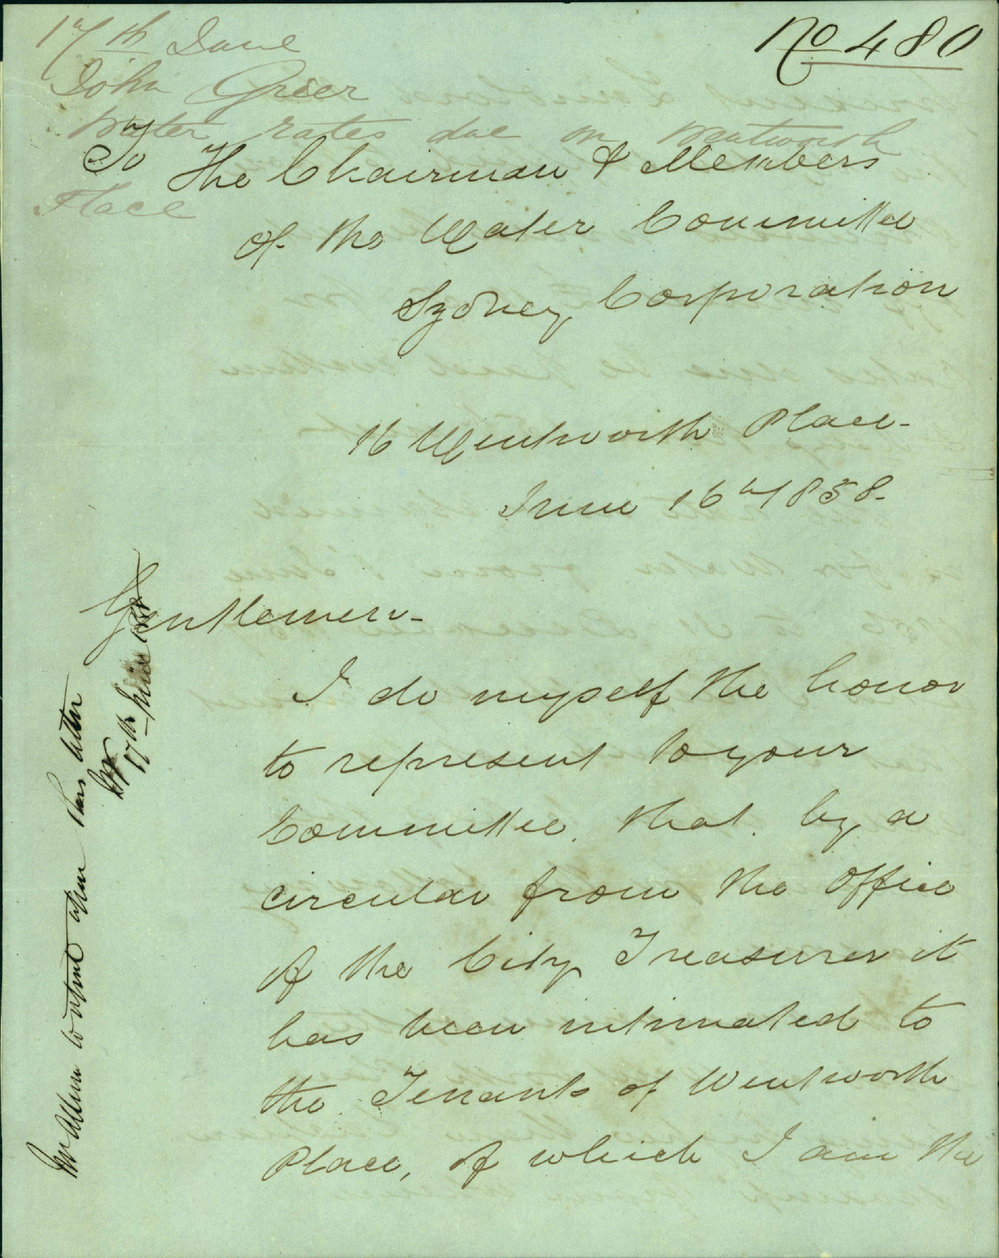 No 480
17th June
John Grier
Water rates due on Wentworth
Place
To The Chairman & Members
of the Water Committee
Sydney Corporation
16 Wentworth Place-
June 16th 1858-
Gentlemen-
I do myself the honor
to represent to your
Committee, that by a
circular from the office
of the City Treasurer it
has been intimated to
the Tenants of Wentworth
Place, of which I am the
Mr Allen to report upon this letter
17th June